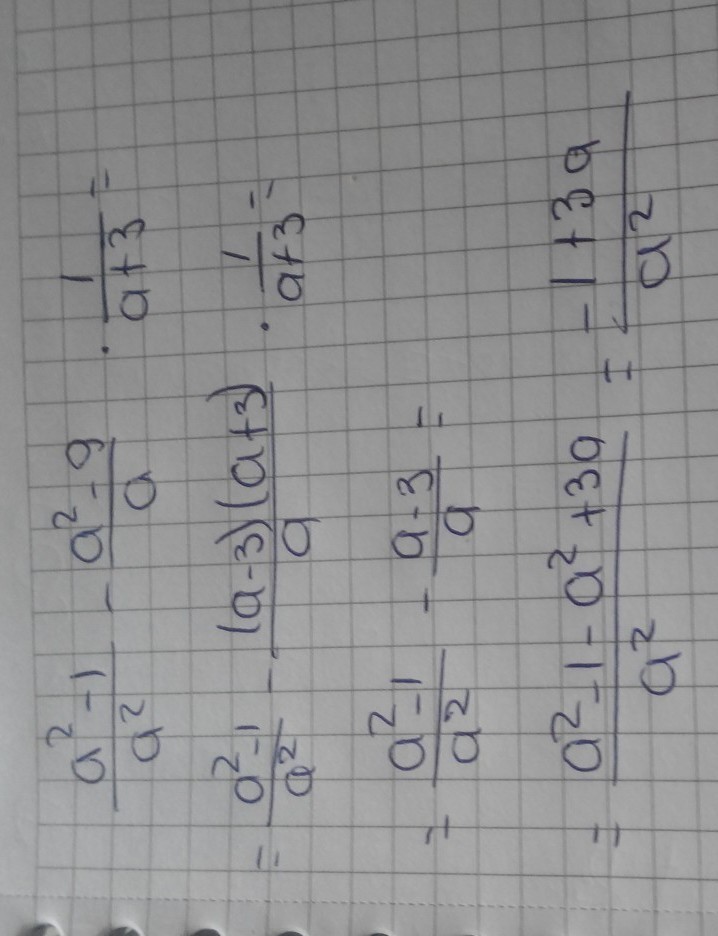 a²-1/a² - a²-9/a · 1/a+3 =
= a²-1/a² - (a-3)(a+3)/a · 1/a+3 =
= a²-1/a² - a-3/a =
= a²-1-a²+3a/a² = -1+3a/a²